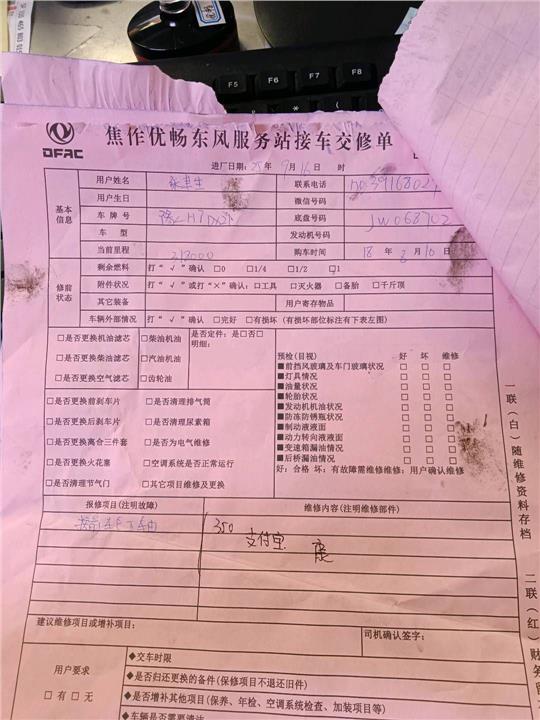 F5 F6 F7 F8
DFAC
焦作优畅东风服务站接车交修单
进厂日期：25年 9月16日 时
基本信息
用户姓名 联系电话
用户生日 微信号码
车牌号 底盘号码 JW068702
车型 发动机号码
当前里程 218000 购车时间 18年 日
修前状态
剩余燃料 打“√”确认 □0 □1/4 □1/2 □1
附件状况 打“√”或打“×”确认：□工具 □灭火器 □备胎 □千斤顶
其它装备 用户寄存物品
车辆外部情况 打“√”确认 □完好 □有损坏（有损坏部位标注有下表左图）
□是否更换机油滤芯 □柴油机油 是否定件：是□否□
□是否更换柴油滤芯 □汽油机油 明细：
□是否更换空气滤芯 □齿轮油
□是否更换前刹车片 □是否清理排气筒
□是否更换后刹车片 □是否清理尿素箱
□是否更换离合三件套 □是否为电气维修
□是否更换火花塞 □空调系统是否正常运行
□是否清理节气门 □其它项目维修及更换
预检(目视) 好 坏 维修
■前挡风玻璃及车门玻璃状况 □ □ □
■灯具情况 □ □ □
■油量状况 □ □ □
■轮胎状况 □ □ □
■发动机机油情况 □ □ □
■防冻防锈瓶状况 □ □ □
■制动液液面 □ □ □
■动力转向液液面 □ □ □
■变速箱漏油情况 □ □ □
■后桥漏油情况 □ □ □
好：合格 坏：有故障需维修维修：用户确认维修
报修项目(注明故障) 维修内容(注明维修部件)
350
支付宝
建议维修项目或增补项目： 司机确认签字：
用户要求
□有□无
◆交车时限
◆是否归还更换的备件(保修项目不退还旧件)
◆是否增补其他项目(保养、年检、空调系统检查、加装项目等)
◆车辆是否需要清洁
一联（白）随维修资料存档
二联（红）财务留